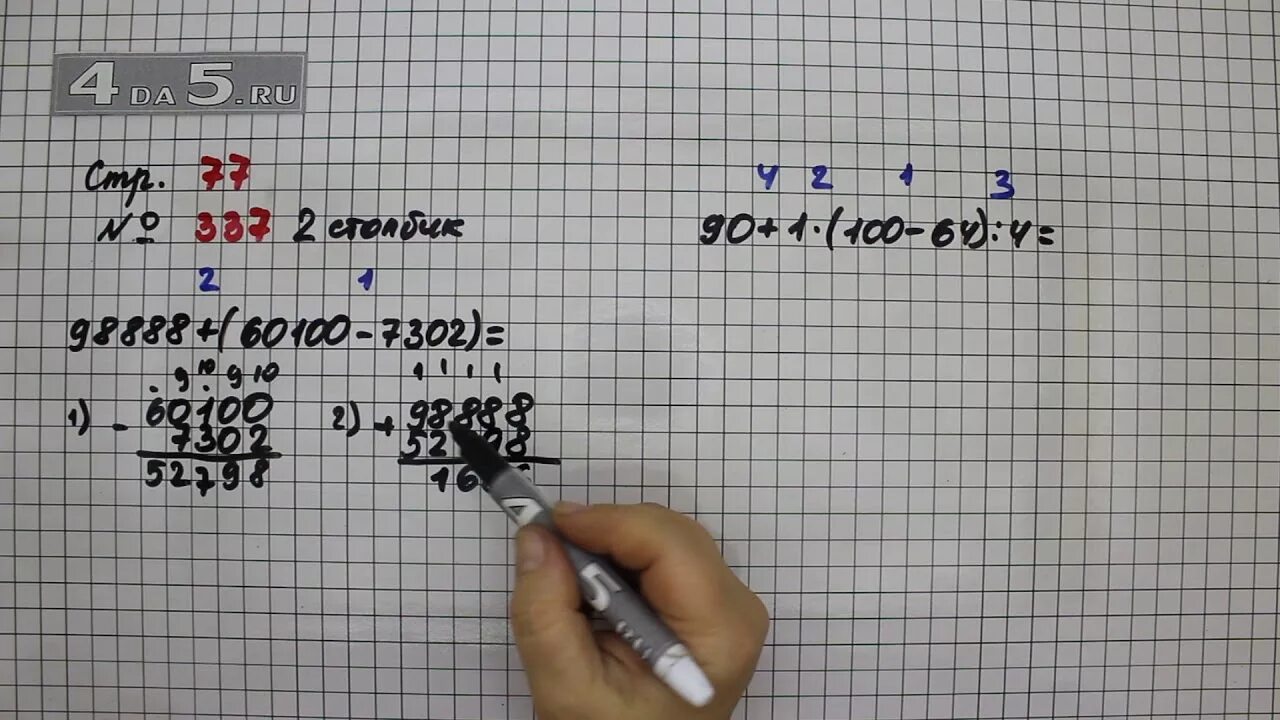 4DA5.RU
Стр. 77
№ 337 2 столбик
2 1
98888+(60100-7302)=
9 10 9 10
1) - 60100
7302
52798
1 1 1 1
2) + 98888
52 98
16
4 2 1 3
90+1·(100-64):4=